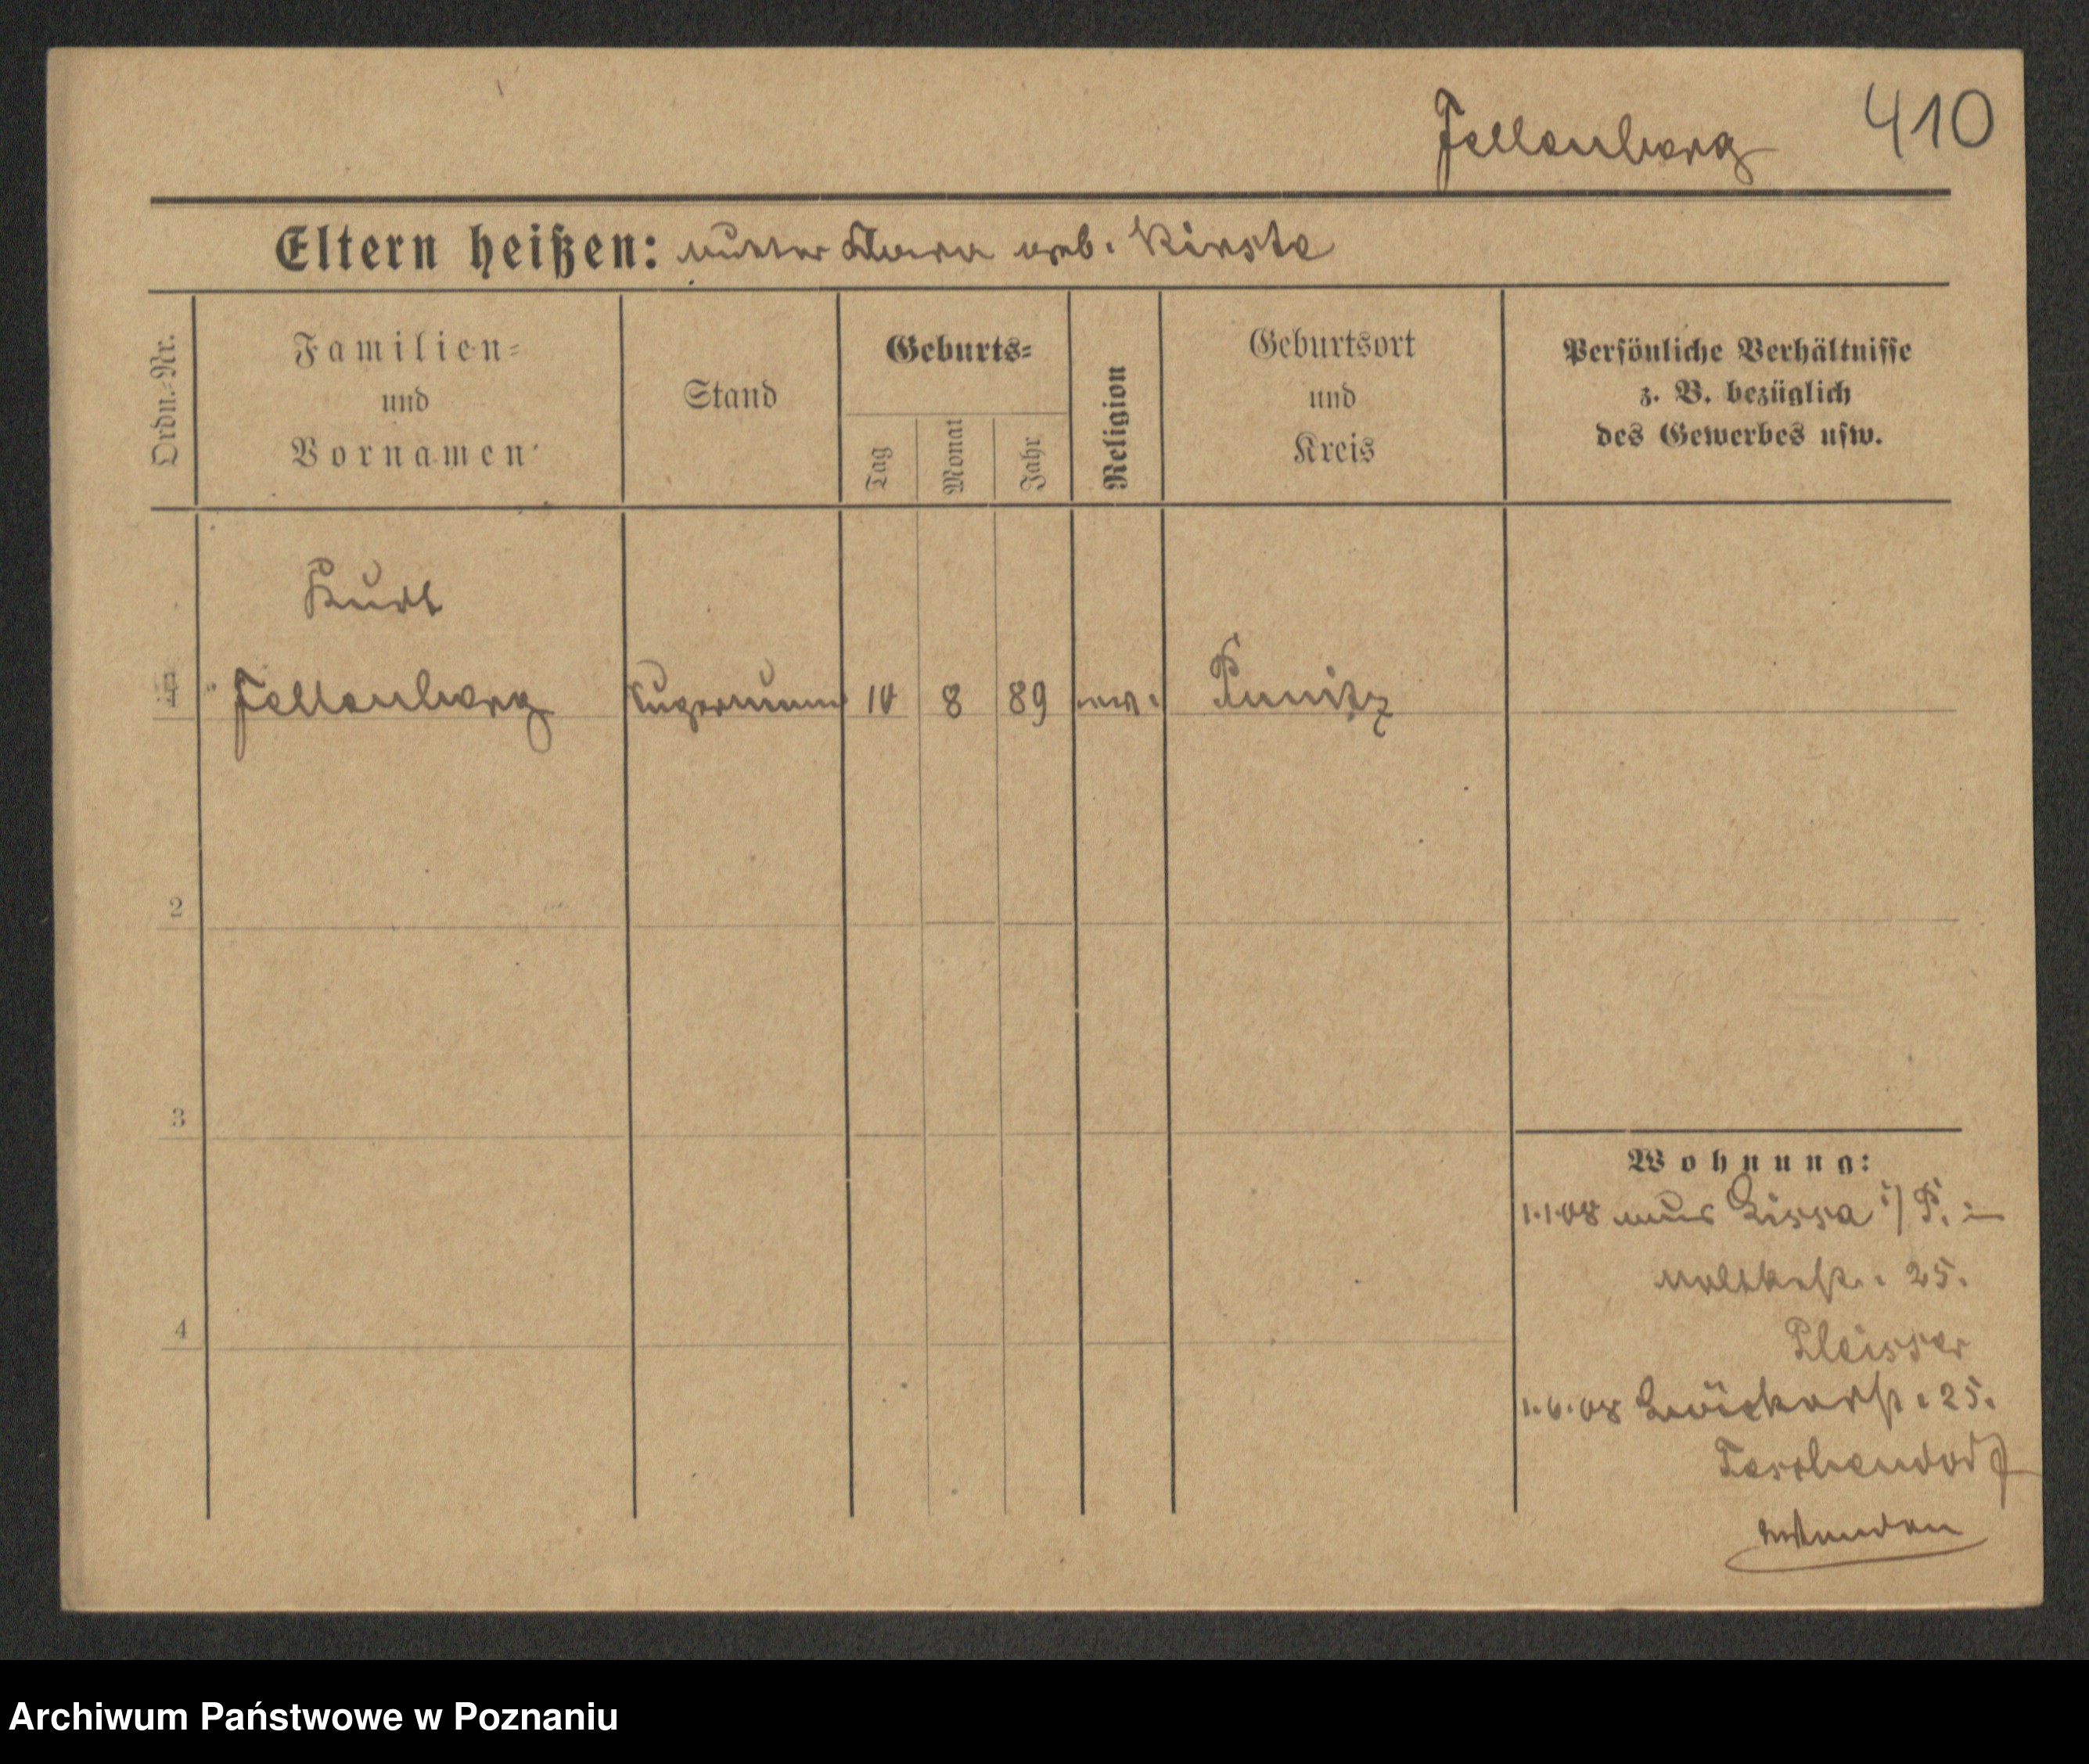 Fellenberg 410
Eltern heißen: Mutter Klara geb. Kirste
Ordn.-Nr.
Familien-
und
Vornamen
Stand
Geburts-
Tag
Monat
Jahr
Religion
Geburtsort
und
Kreis
Persönliche Verhältnisse
z. B. bezüglich
des Gewerbes usw.
Kurt
1 Fellenberg 10 8 89 Punitz
2
3
4
Wohnung:
1.1.08 aus Lissa i/P.
Moltkestr. 25.
Pleisser
1.6.08 25.
Teschendorf